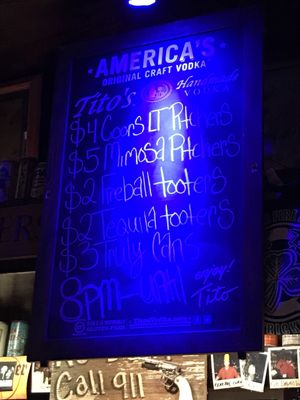 AMERICA'S
ORIGINAL CRAFT VODKA
Tito's Handmade
VODKA
$4 Coors LT Pitchers
$5 Mimosa Pitchers
$2 Fireball tooters
$2 Tequila tooters
$3 Truly Cans
8pm-until enjoy!
Tito
Call 911